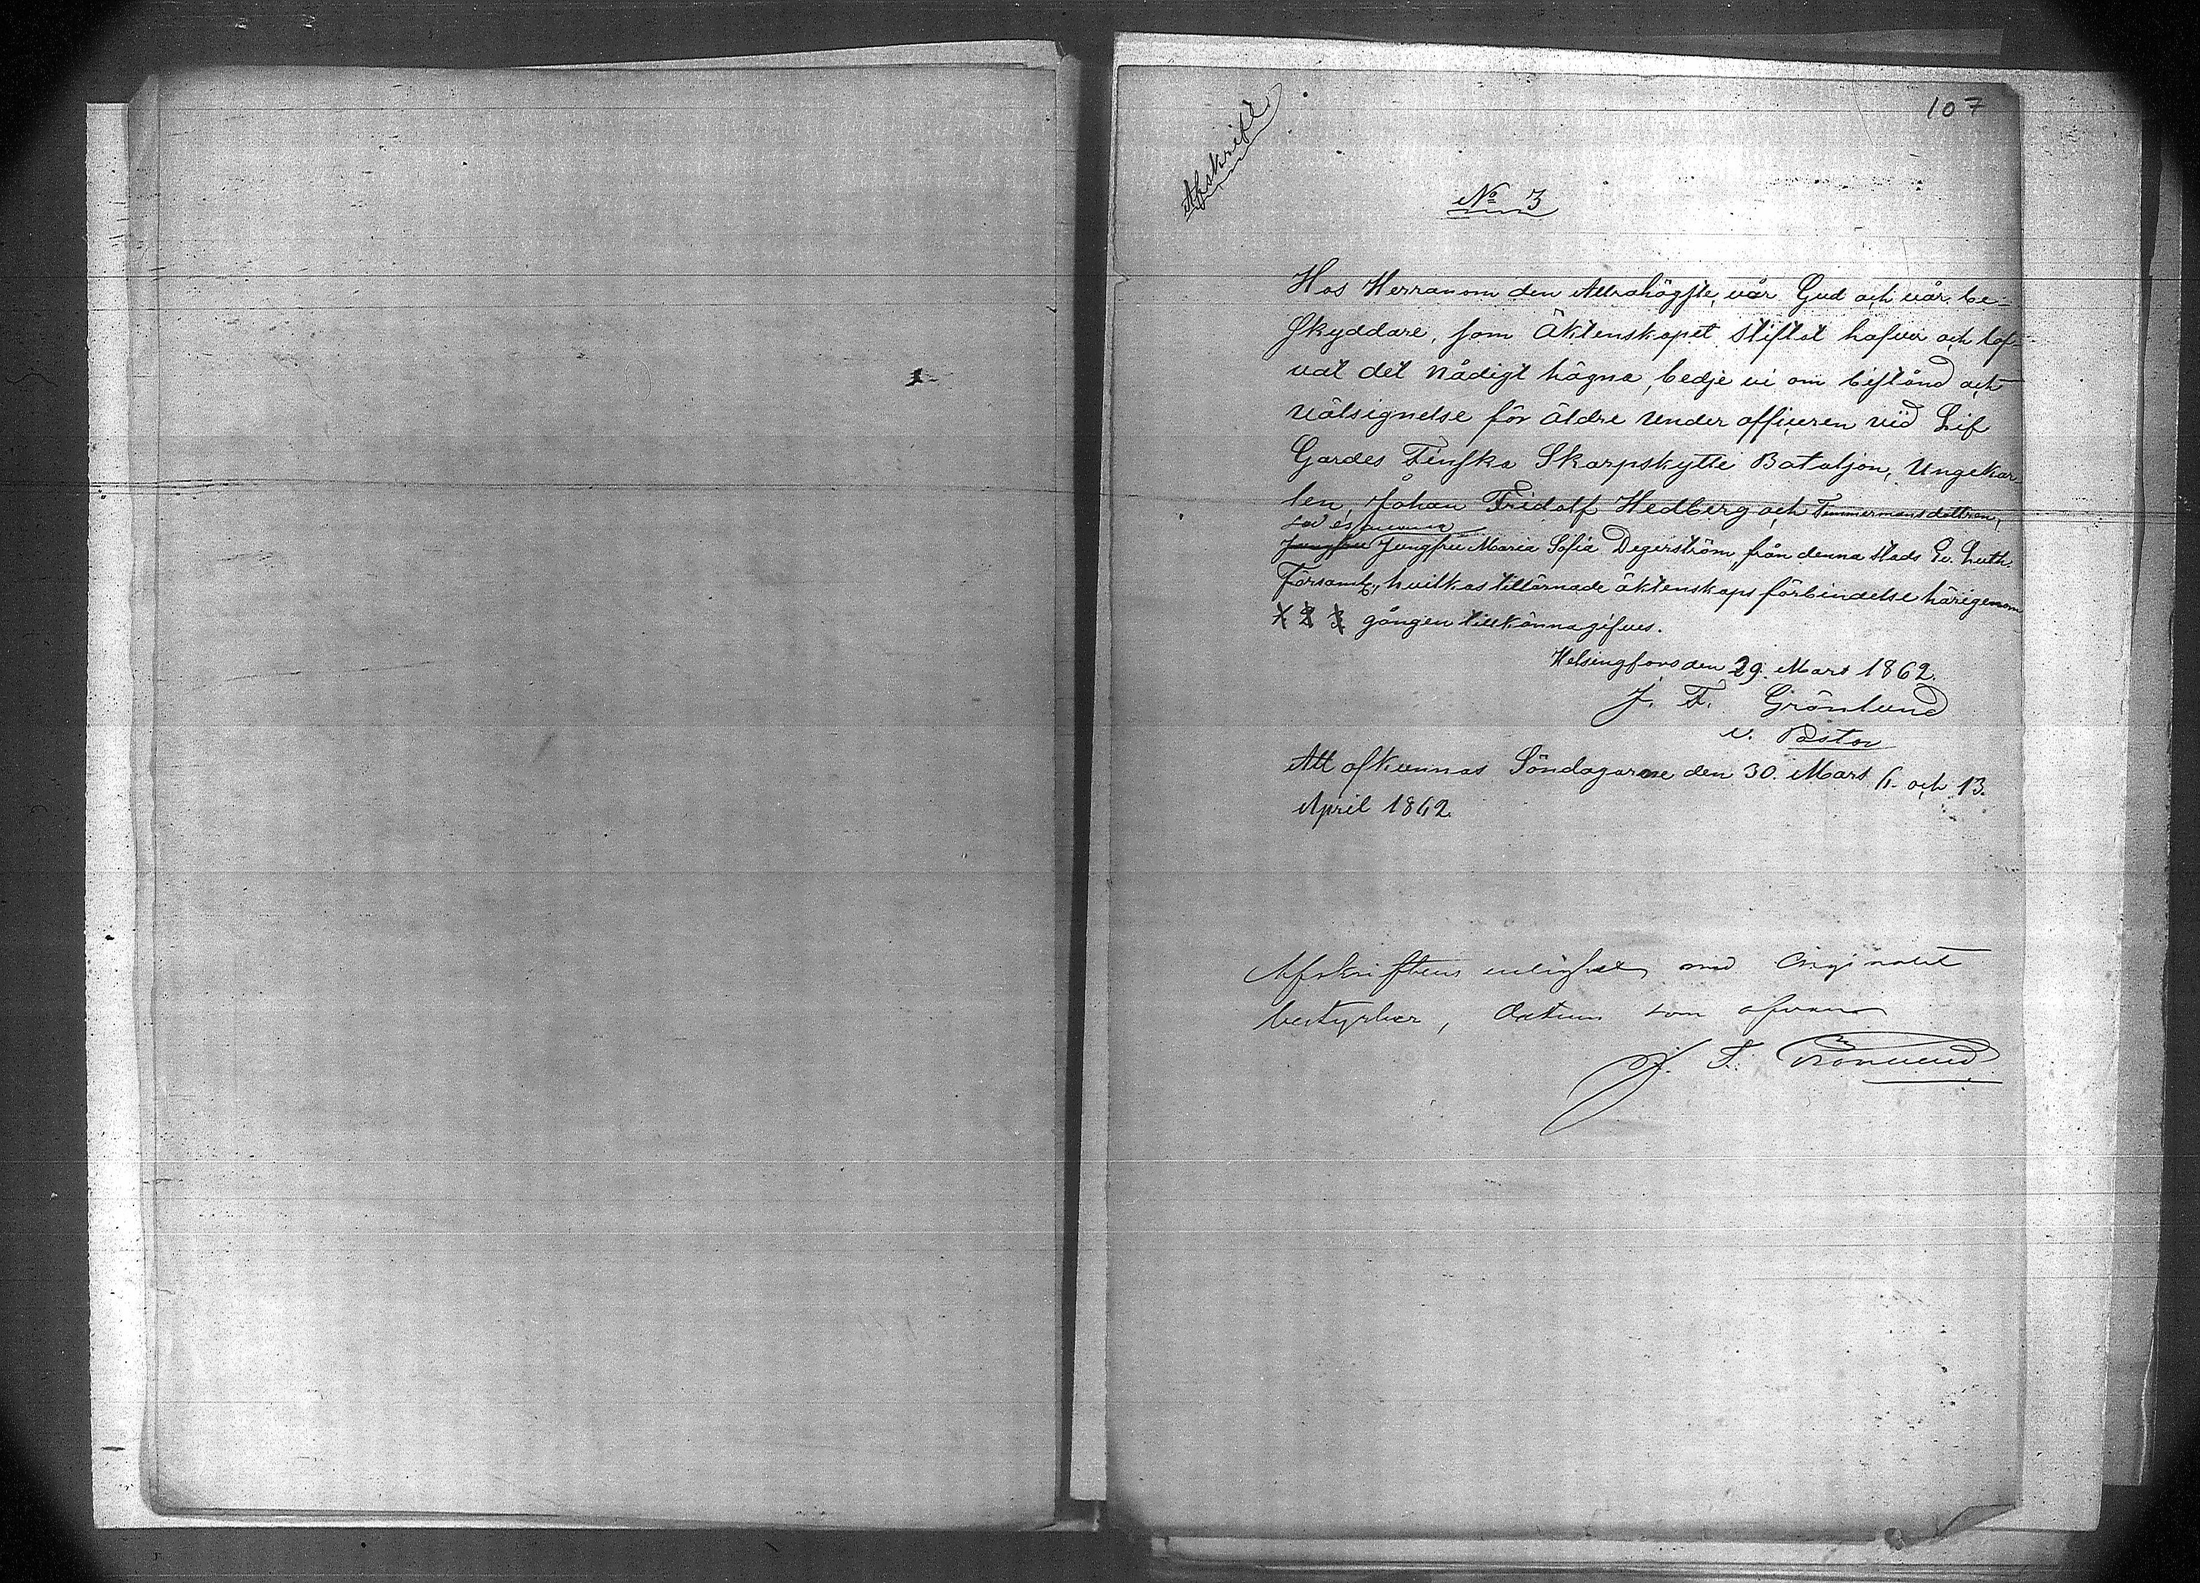 107
Afskrift
No 3
Hos Herranom den Allrahögste, vår Gud och vår be-
skyddare, som Äktenskapet stiftat hafver och lof-
vat det nådigt hägna, bedje vi om bistånd och
välsignelse för äldre Underofficeren vid Lif
Gardes Finska Skarpskytte Bataljon, Ungekar-
len, Johan Fridolf Hedberg och Timmermansdottren,
Jungfru Jungfru Maria Sofia Degerström, från denna stads Ev. Luth.
Församl., hvilkas tillärnade äktenskaps förbindelse härigenom
1 2 3 gången tillkännagifves.
Helsingfors den 29. Mars 1862.
J. F. Grönlund
v. Pastor
Att afkunnas Söndagarne den 30. Mars, 6. och 13.
April 1862.
Afskriftens enlighet med Originalet
bestyrker, datum som ofvan
J. F. Grönlund